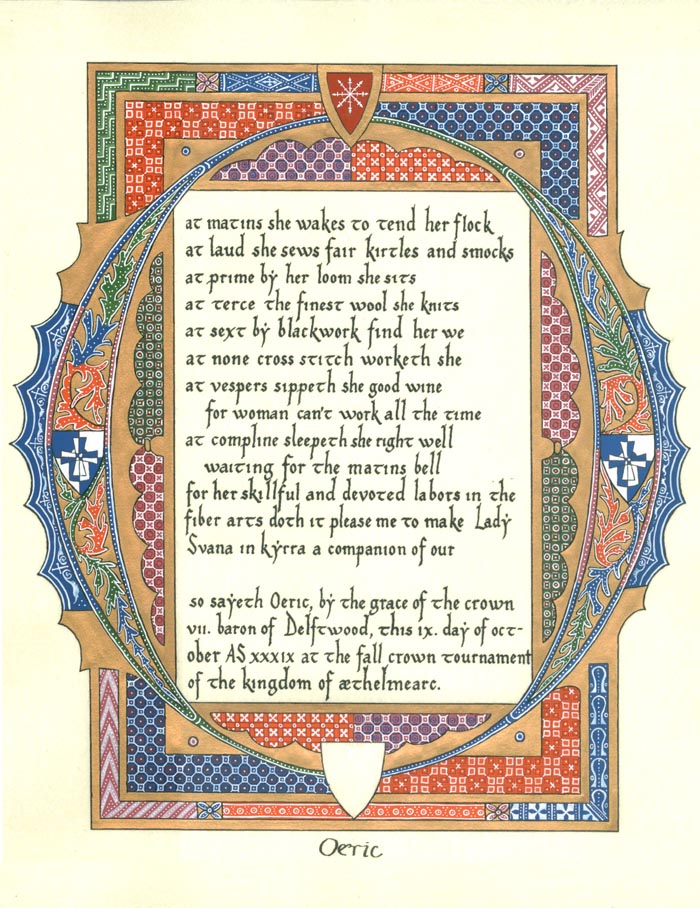 at matins she wakes to tend her flock
at laud she sews fair kirtles and smocks
at prime by her loom she sits
at terce the finest wool she knits
at sext by blackwork find her we
at none cross stitch worketh she
at vespers sippeth she good wine
for woman can't work all the time
at compline sleepeth she right well
waiting for the matins bell
for her skillful and devoted labors in the
fiber arts doth it please me to make Lady
Svana in kyrra a companion of our
so sayeth Oeric, by the grace of the crown
vii. baron of Delftwood, this ix. day of oct-
ober AS xxxix at the fall crown tournament
of the kingdom of æthelmearc.
Oeric